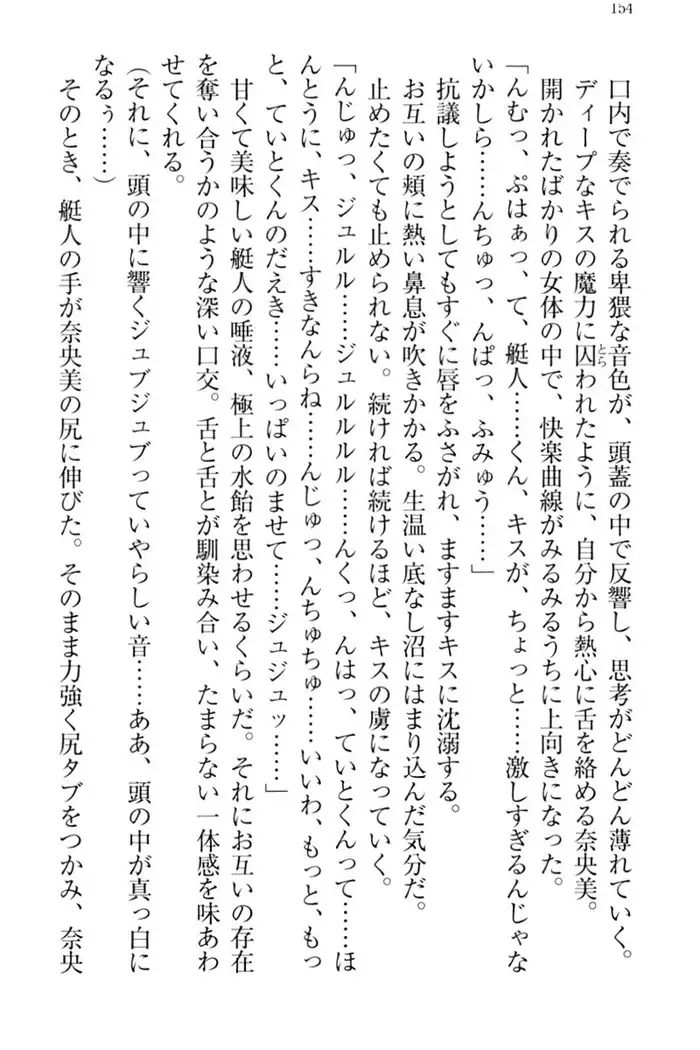 154
口内で奏でられる卑猥な音色が、頭蓋の中で反響し、思考がどんどん薄れていく。
ディープなキスの魔力に囚われたように、自分から熱心に舌を絡める奈央美。
開かれたばかりの女体の中で、快楽曲線がみるみるうちに上向きになった。
「んむっ、ぷはぁっ、て、艇人……くん、キスが、ちょっと……激しすぎるんじゃな
いかしら……んちゅっ、んぱっ、ふみゅう……」
抗議しようとしてもすぐに唇をふさがれ、ますますキスに沈溺する。
お互いの頬に熱い鼻息が吹きかかる。生温い底なし沼にはまり込んだ気分だ。
止めたくても止められない。続ければ続けるほど、キスの虜になっていく。
「んじゅっ、ジュルル……ジュルルルル……んくっ、んはっ、ていとくんって……ほ
んとうに、キス……すきなんらね……んじゅっ、んちゅちゅ……いいわ、もっと、もっ
と、ていとくんのだえき……いっぱいのませて……ジュジュッ……」
甘くて美味しい艇人の唾液、極上の水飴を思わせるくらいだ。それにお互いの存在
を奪い合うかのような深い口交。舌と舌とが馴染み合い、たまらない一体感を味あわ
せてくれる。
（それに、頭の中に響くジュブジュブっていやらしい音……ああ、頭の中が真っ白に
なるぅ……）
そのとき、艇人の手が奈央美の尻に伸びた。そのまま力強く尻タブをつかみ、奈央
とら